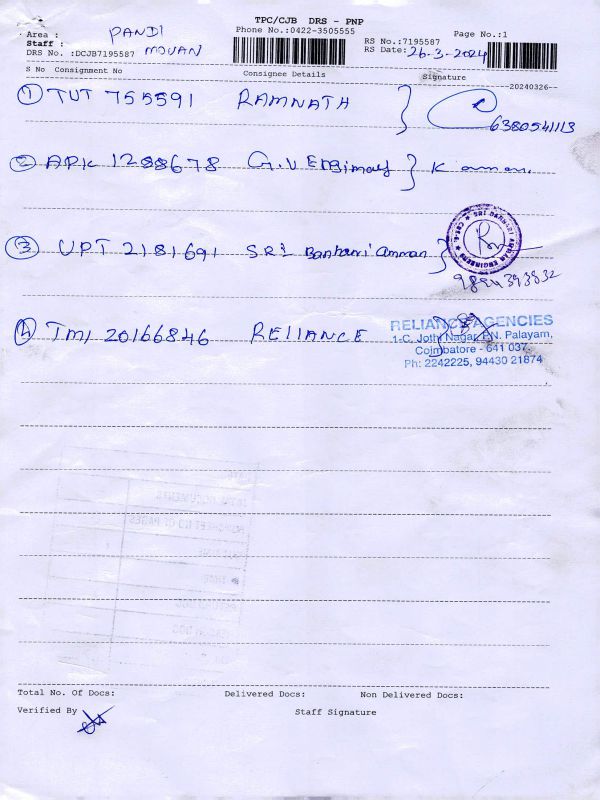 TPC/CJB DRS - PNP
Area : PANDI Phone No.:0422-3505555 Page No.:1
Staff : MOUAN RS No.:7195587
DRS No. :DCJB7195587 RS Date: 26-3-2024
S No Consignment No Consignee Details Signature
--20240326--
1 TUT 755591 RAMNATH
6380541113
2 APK 1288678
3 UPT 2181691 SRI Banhari Amman
9894393832
4 TMI 20166846 RELIANCE
RELIANCE AGENCIES
1-C, Jothi Nagar, P.N. Palayam,
Coimbatore - 641 037.
Ph: 2242225, 94430 21874
Total No. Of Docs: Delivered Docs: Non Delivered Docs:
Verified By Staff Signature